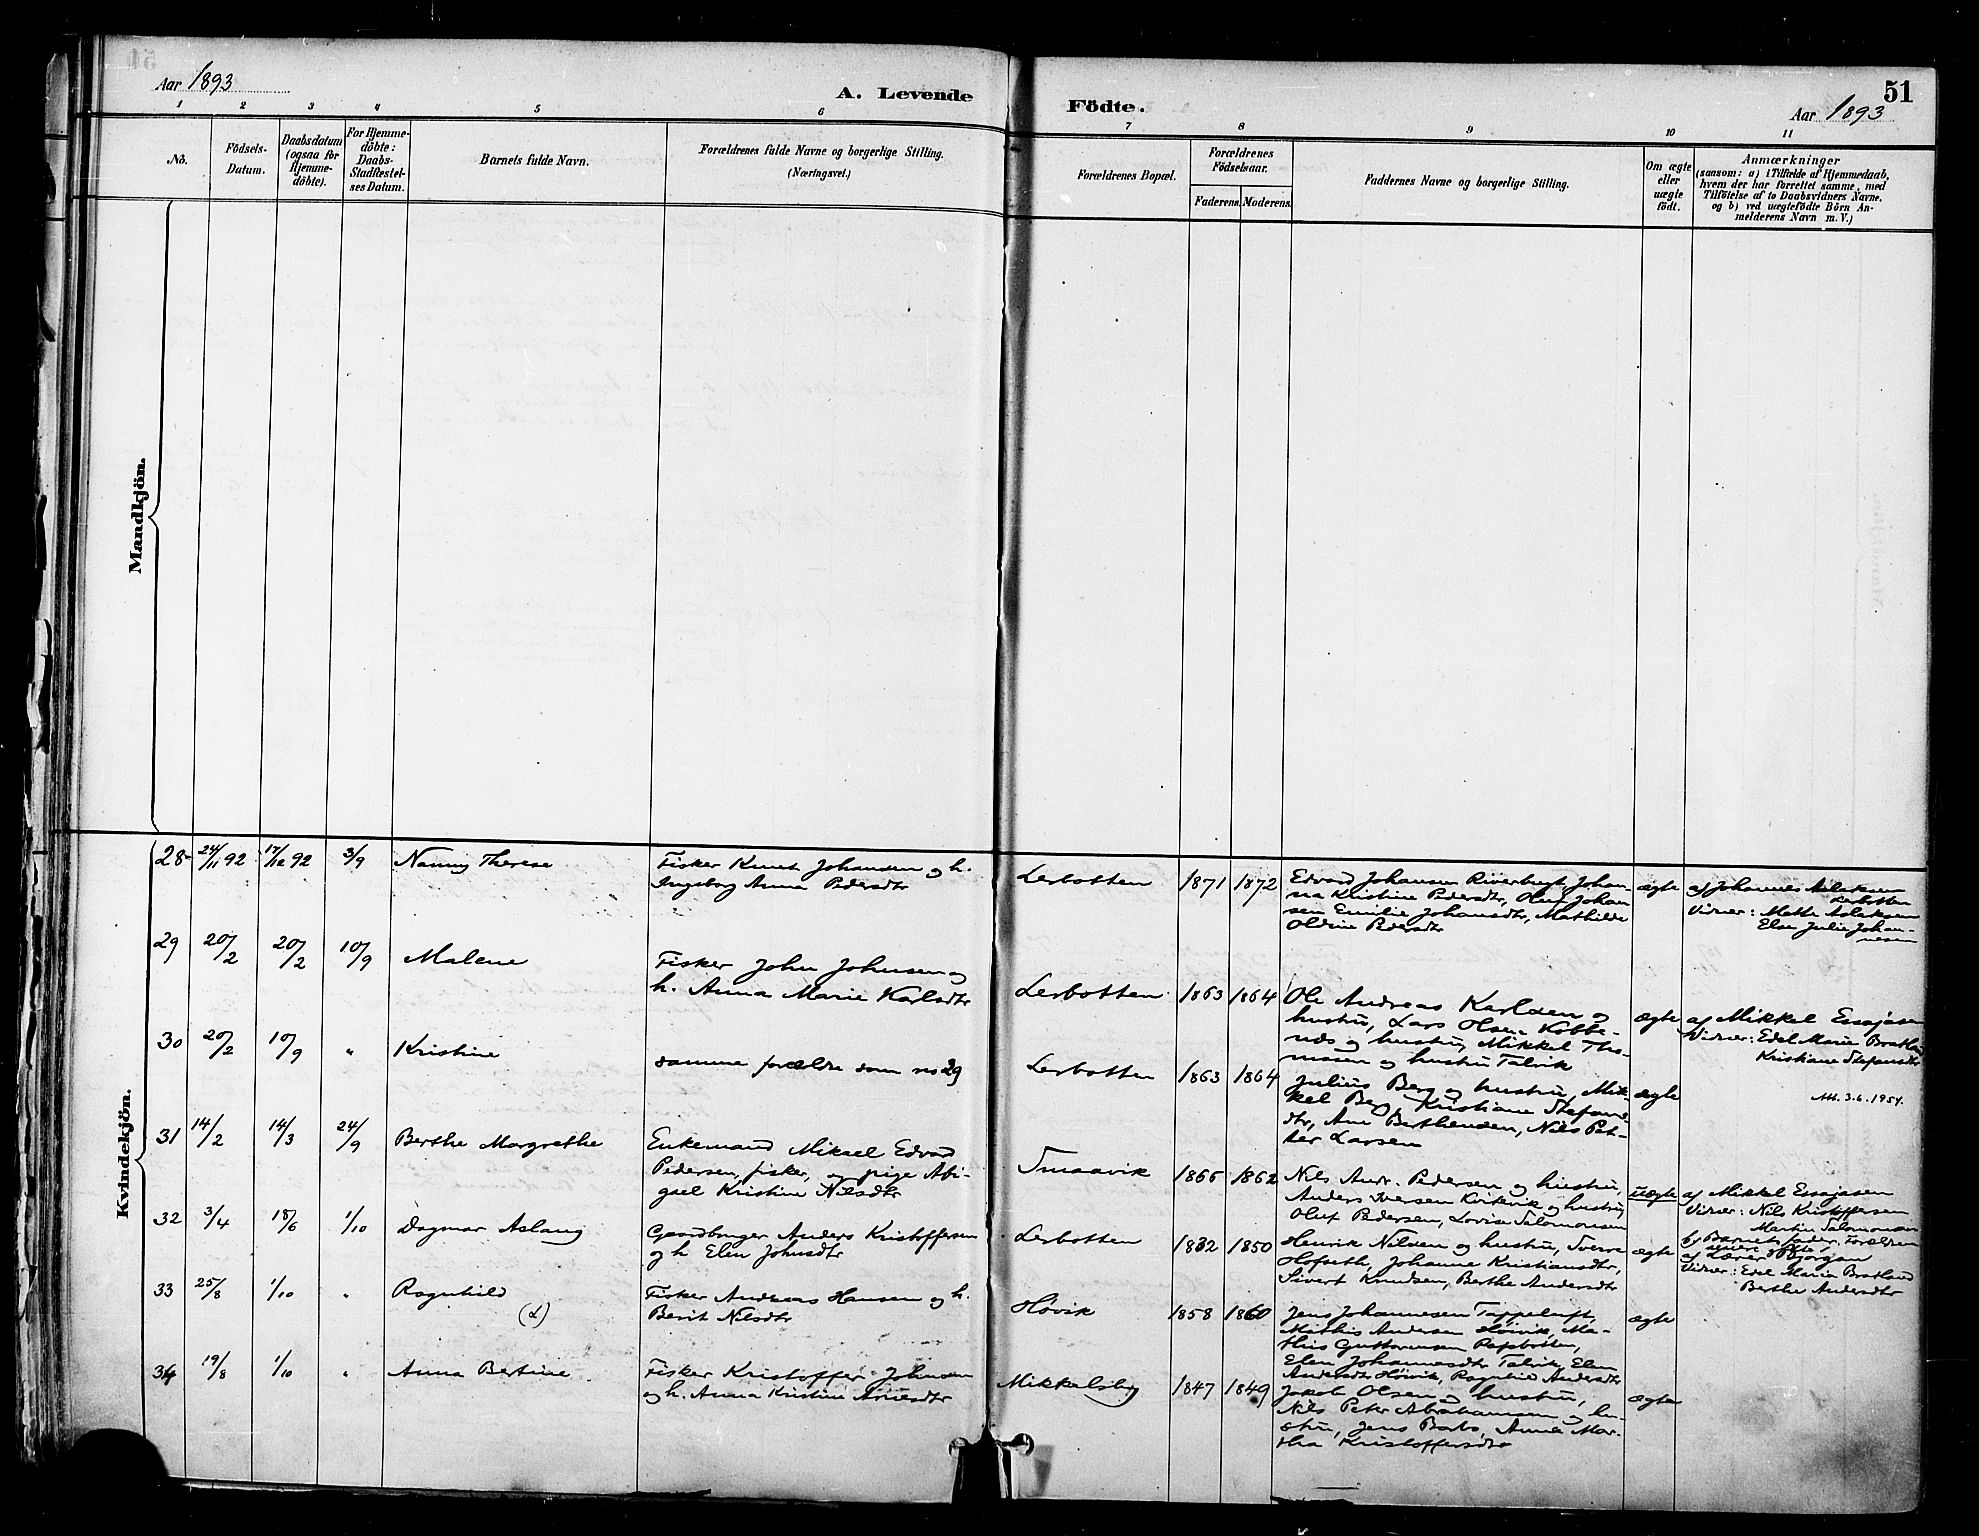 Aar 1893
A. Levende
Födte.
Aar 1893
51
1 2 3 4 5 6 7 8 9 10 11
No.
Födsels-
Datum.
Daabsdatum
(ogsaa for
Hjemme-
döbte).
For Hjemme-
döbte:
Daabs-
Stadfæstel-
ses Datum.
Barnets fulde Navn.
Forældrenes fulde Navne og borgerlige Stilling.
(Næringsvei.)
Forældrenes Bopæl.
Forældrenes
Födselsaar.
Faderens. Moderens.
Faddernes Navne og borgerlige Stilling.
Om ægte
eller
uægte
födt.
Anmærkninger
(saasom: a) i Tilfælde af Hjemmedaab,
hvem der har forrettet samme, med
Tilföielse af to Daabsvidners Navne,
og b) ved uægtefödte Börn An-
melderens Navn m. V.)
Mandkjön.
Kvindekjön.
28 24/11 92 17/12 92 3/9 Nanny Therese
Fisker Knut Johansen og h.
Ingeborg Anna Pedersdtr
Lerbotten 1871 1872
Edvard Johansen Riverbugt, Johan-
na Kristine Pedersdtr, Oluf Johan
sen Emilie Johansdtr, Mathilde
Oldine Pedersdtr
ægte
af Johannes Aslaksen
Lerbotten
Vidner: Mette Aslaksen
Else Julie Johan-
nesen
29 20/2 20/2 10/9 Malene
Fisker John Johnsen og
h. Anna Marie Karlsdtr
Lerbotten 1863 1864
Ole Andreas Karlsen og
hustru, Lars Olsen Kobbe-
nes og hustru, Mikkel Tho-
masen og hustru Talvik
ægte
af Mikkel Essajasen
Vidner: Edel Marie Bratland
Kristiane Stefansdtr
30 20/2 10/9 " Kristine
samme forældre som no 29
Lerbotten 1863 1864
Julius Berg og hustru, Mik-
kel Berg, Kristiane Stefans-
dtr, Ane Berthensen, Nils Pet-
ter Larsen
ægte
Att. 3.6.1954.
31 14/2 14/3 24/9 Berthe Margrethe
Enkemand Mikael Edvard
Pedersen, fisker, og pige Abi-
gael Kristine Nilsdtr
Smaavik 1866 1862
Nils Andr. Pedersen og hustru,
Anders Iversen Kvikvik og hustru,
Oluf Pedersen, Lovise Salomonsen
uægte
af Mikkel Essajasen
Vidner: Nils Kristoffersen
Martin Salomonsen
b) Barnets fader, Forældren
senere ægte,
32 3/4 18/6 1/10 Dagmar Aslaug
Gaardbruger Anders Kristoffersen
og h. Elen Johnsdtr
Lerbotten 1832 1850
Henrik Nilsen og hustru, Sverre
Hofseth, Johanne Kristiansdtr,
Sivert Knudsen, Berthe Andersdtr
ægte
af Lærer Bjørgan
Vidner: Edel Maria Bratland
Berthe Andersdtr
33 25/8 1/10 " Ragnhild
(d)
Fisker Andreas Hansen og h.
Berit Nilsdtr
Høvik 1858 1860
Jens Johannesen Tappeluft,
Mathis Andersen Høivik, Ma-
this Guttormsen Rafsbotten,
Elen Johannesdtr Talvik, Elen
Andersdtr Høivik, Ragnhild Andersdtr
ægte
34 19/8 1/10 " Anna Bertine
Fisker Kristoffer Johnsen
og h. Anna Kristine
Mikkelsby 1847 1849
Jakob Olsen og hustru,
Nils Peter Abrahamsen og hu-
stru, Jens Barbo, Anna Mar-
tha Kristoffersdtr
ægte